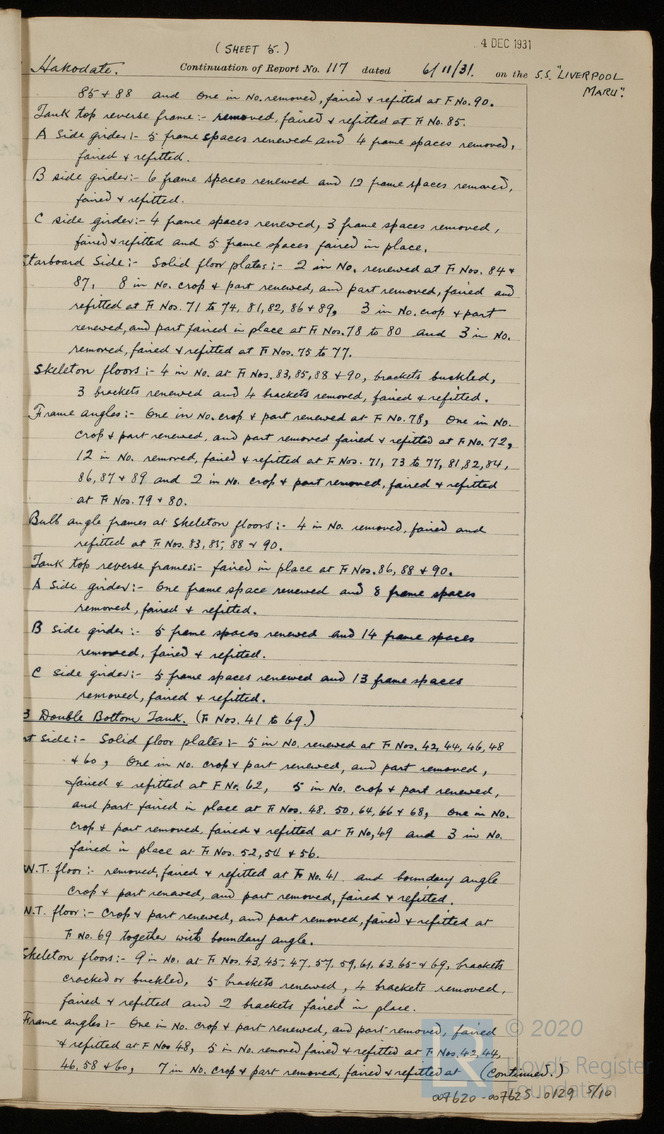 (SHEET 5.)
4 DEC 1931
Hakodate. Continuation of Report No. 117 dated 6/11/31. on the S.S. "LIVERPOOL
MARU".
85 & 88 and One in No. removed, faired & refitted at F No. 90.
Tank top reverse frame:- removed, faired & refitted at F No. 85.
A Side girder:- 5 frame spaces renewed and 4 frame spaces removed,
faired & refitted.
B side girder:- 6 frame spaces renewed and 12 frame spaces removed,
faired & refitted.
C side girder:- 4 frame spaces renewed, 3 frame spaces removed,
faired & refitted and 5 frame spaces faired in place.
Starboard Side:- Solid floor plates:- 2 in No. renewed at F Nos. 84 &
87, 8 in No. crop & part renewed, and part removed, faired and
refitted at F Nos. 71 to 74, 81, 82, 86 & 89, 3 in No. crop & part
renewed, and part faired in place at F Nos. 78 to 80 and 3 in No.
removed, faired & refitted at F Nos. 75 to 77.
Skeleton floors:- 4 in No. at F Nos. 83, 85, 88 & 90, brackets buckled,
3 brackets renewed and 4 brackets removed, faired & refitted.
Frame angles:- One in No. crop & part renewed at F No. 78, One in No.
crop & part renewed, and part removed faired & refitted at F No. 72,
12 in No. removed, faired & refitted at F Nos. 71, 73 to 77, 81, 82, 84,
86, 87 & 89 and 2 in No. crop & part removed, faired & refitted
at F Nos. 79 & 80.
Bulb angle frames at Skeleton floors:- 4 in No. removed, faired and
refitted at F Nos. 83, 85, 88 & 90.
Tank top reverse frames:- faired in place at F Nos. 86, 88 & 90.
A Side girder:- One frame space renewed and 8 frame spaces
removed, faired & refitted.
B Side girder:- 5 frame spaces renewed and 14 frame spaces
removed, faired & refitted.
C side girder:- 5 frame spaces renewed and 13 frame spaces
removed, faired & refitted.
3 Double Bottom Tank. (F Nos. 41 to 69.)
rt Side:- Solid floor plates:- 5 in No. renewed at F Nos. 42, 44, 46, 48
& 60, One in No. crop & part renewed, and part removed,
faired & refitted at F No. 62, 5 in No. crop & part renewed,
and part faired in place at F Nos. 48. 50, 64, 66 & 68, One in No.
crop & part removed, faired & refitted at F No, 49 and 3 in No.
faired in place at F Nos. 52, 54 & 56.
W.T. floor:- removed, faired & refitted at F No. 41 and boundary angle
crop & part renewed, and part removed, faired & refitted.
W.T. floor:- Crop & part renewed, and part removed, faired & refitted at
F No. 69 together with boundary angle.
Skeleton floors:- 9 in No. at F Nos. 43. 45. 47. 57. 59, 61, 63. 65 & 69, brackets
cracked or buckled, 5 brackets renewed, 4 brackets removed,
faired & refitted and 2 brackets faired in place.
Frame angles:- One in No. crop & part renewed, and part removed, faired
& refitted at F Nos 48, 5 in No. removed faired & refitted at F Nos. 42, 44,
46. 58 & 60, 7 in No. crop & part removed, faired & refitted at (Continued.)
© 2020
Lloyd's Register
Foundation
007620-007625-0129 5/10